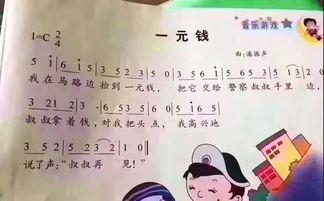 音乐游戏
1=C 2/4
一元钱
曲:潘振声
5 i 6 i 5 | 3 5 2 3 5 0 | 3 5 6 3 5 3 5 | 5 i 3 0 |
我在马路边捡到一元钱, 把它交给警察叔叔手里边,
3 21 2 3 - | 6 53 5 6 0 | 3 5 3 5 6 |
叔叔拿着钱, 对我把头点, 我高兴地
3 5 2 | 5 2 3 2 | 1 0 ||
说了声:“叔叔再 见!”